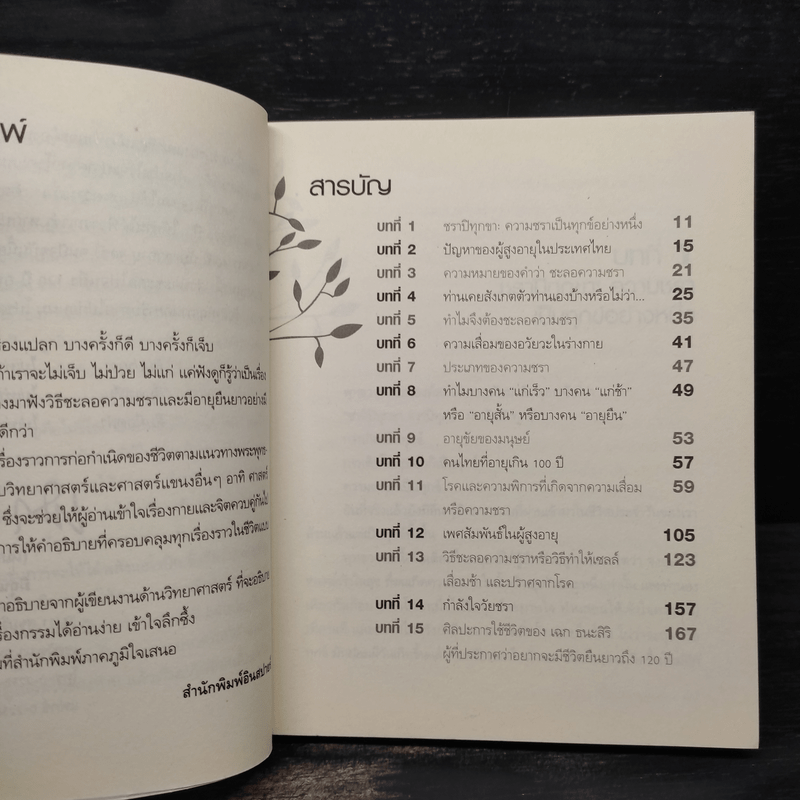 พ์
ของแปลก บางครั้งก็ดี บางครั้งก็เจ็บ
ถ้าเราจะไม่เจ็บ ไม่ป่วย ไม่แก่ แค่ฟังดูก็รู้ว่าเป็นเรื่อง
มาฟังวิธีชะลอความชราและมีอายุยืนยาวอย่างมี
ดีกว่า
เรื่องราวการก่อกำเนิดของชีวิตตามแนวทางพระพุทธ-
วิทยาศาสตร์และศาสตร์แขนงอื่นๆ อาทิ ศาสตร์
ซึ่งจะช่วยให้ผู้อ่านเข้าใจเรื่องกายและจิตควบคู่กันไป
การให้คำอธิบายที่ครอบคลุมทุกเรื่องราวในชีวิตแบบ
คำอธิบายจากผู้เขียนงานด้านวิทยาศาสตร์ ที่จะอธิบาย
เรื่องกรรมได้อ่านง่าย เข้าใจลึกซึ้ง
ที่สำนักพิมพ์ภาคภูมิใจเสนอ
สำนักพิมพ์อินสปายร์
สารบัญ
บทที่ 1 ชราปิทุกขา: ความชราเป็นทุกข์อย่างหนึ่ง 11
บทที่ 2 ปัญหาของผู้สูงอายุในประเทศไทย 15
บทที่ 3 ความหมายของคำว่า ชะลอความชรา 21
บทที่ 4 ท่านเคยสังเกตตัวท่านเองบ้างหรือไม่ว่า... 25
บทที่ 5 ทำไมจึงต้องชะลอความชรา 35
บทที่ 6 ความเสื่อมของอวัยวะในร่างกาย 41
บทที่ 7 ประเภทของความชรา 47
บทที่ 8 ทำไมบางคน "แก่เร็ว" บางคน "แก่ช้า" 49
หรือ "อายุสั้น" หรือบางคน "อายุยืน"
บทที่ 9 อายุขัยของมนุษย์ 53
บทที่ 10 คนไทยที่อายุเกิน 100 ปี 57
บทที่ 11 โรคและความพิการที่เกิดจากความเสื่อม 59
หรือความชรา
บทที่ 12 เพศสัมพันธ์ในผู้สูงอายุ 105
บทที่ 13 วิธีชะลอความชราหรือวิธีทำให้เซลล์ 123
เสื่อมช้า และปราศจากโรค
บทที่ 14 กำลังใจวัยชรา 157
บทที่ 15 ศิลปะการใช้ชีวิตของ เฉก ธนะสิริ 167
ผู้ที่ประกาศว่าอยากจะมีชีวิตยืนยาวถึง 120 ปี